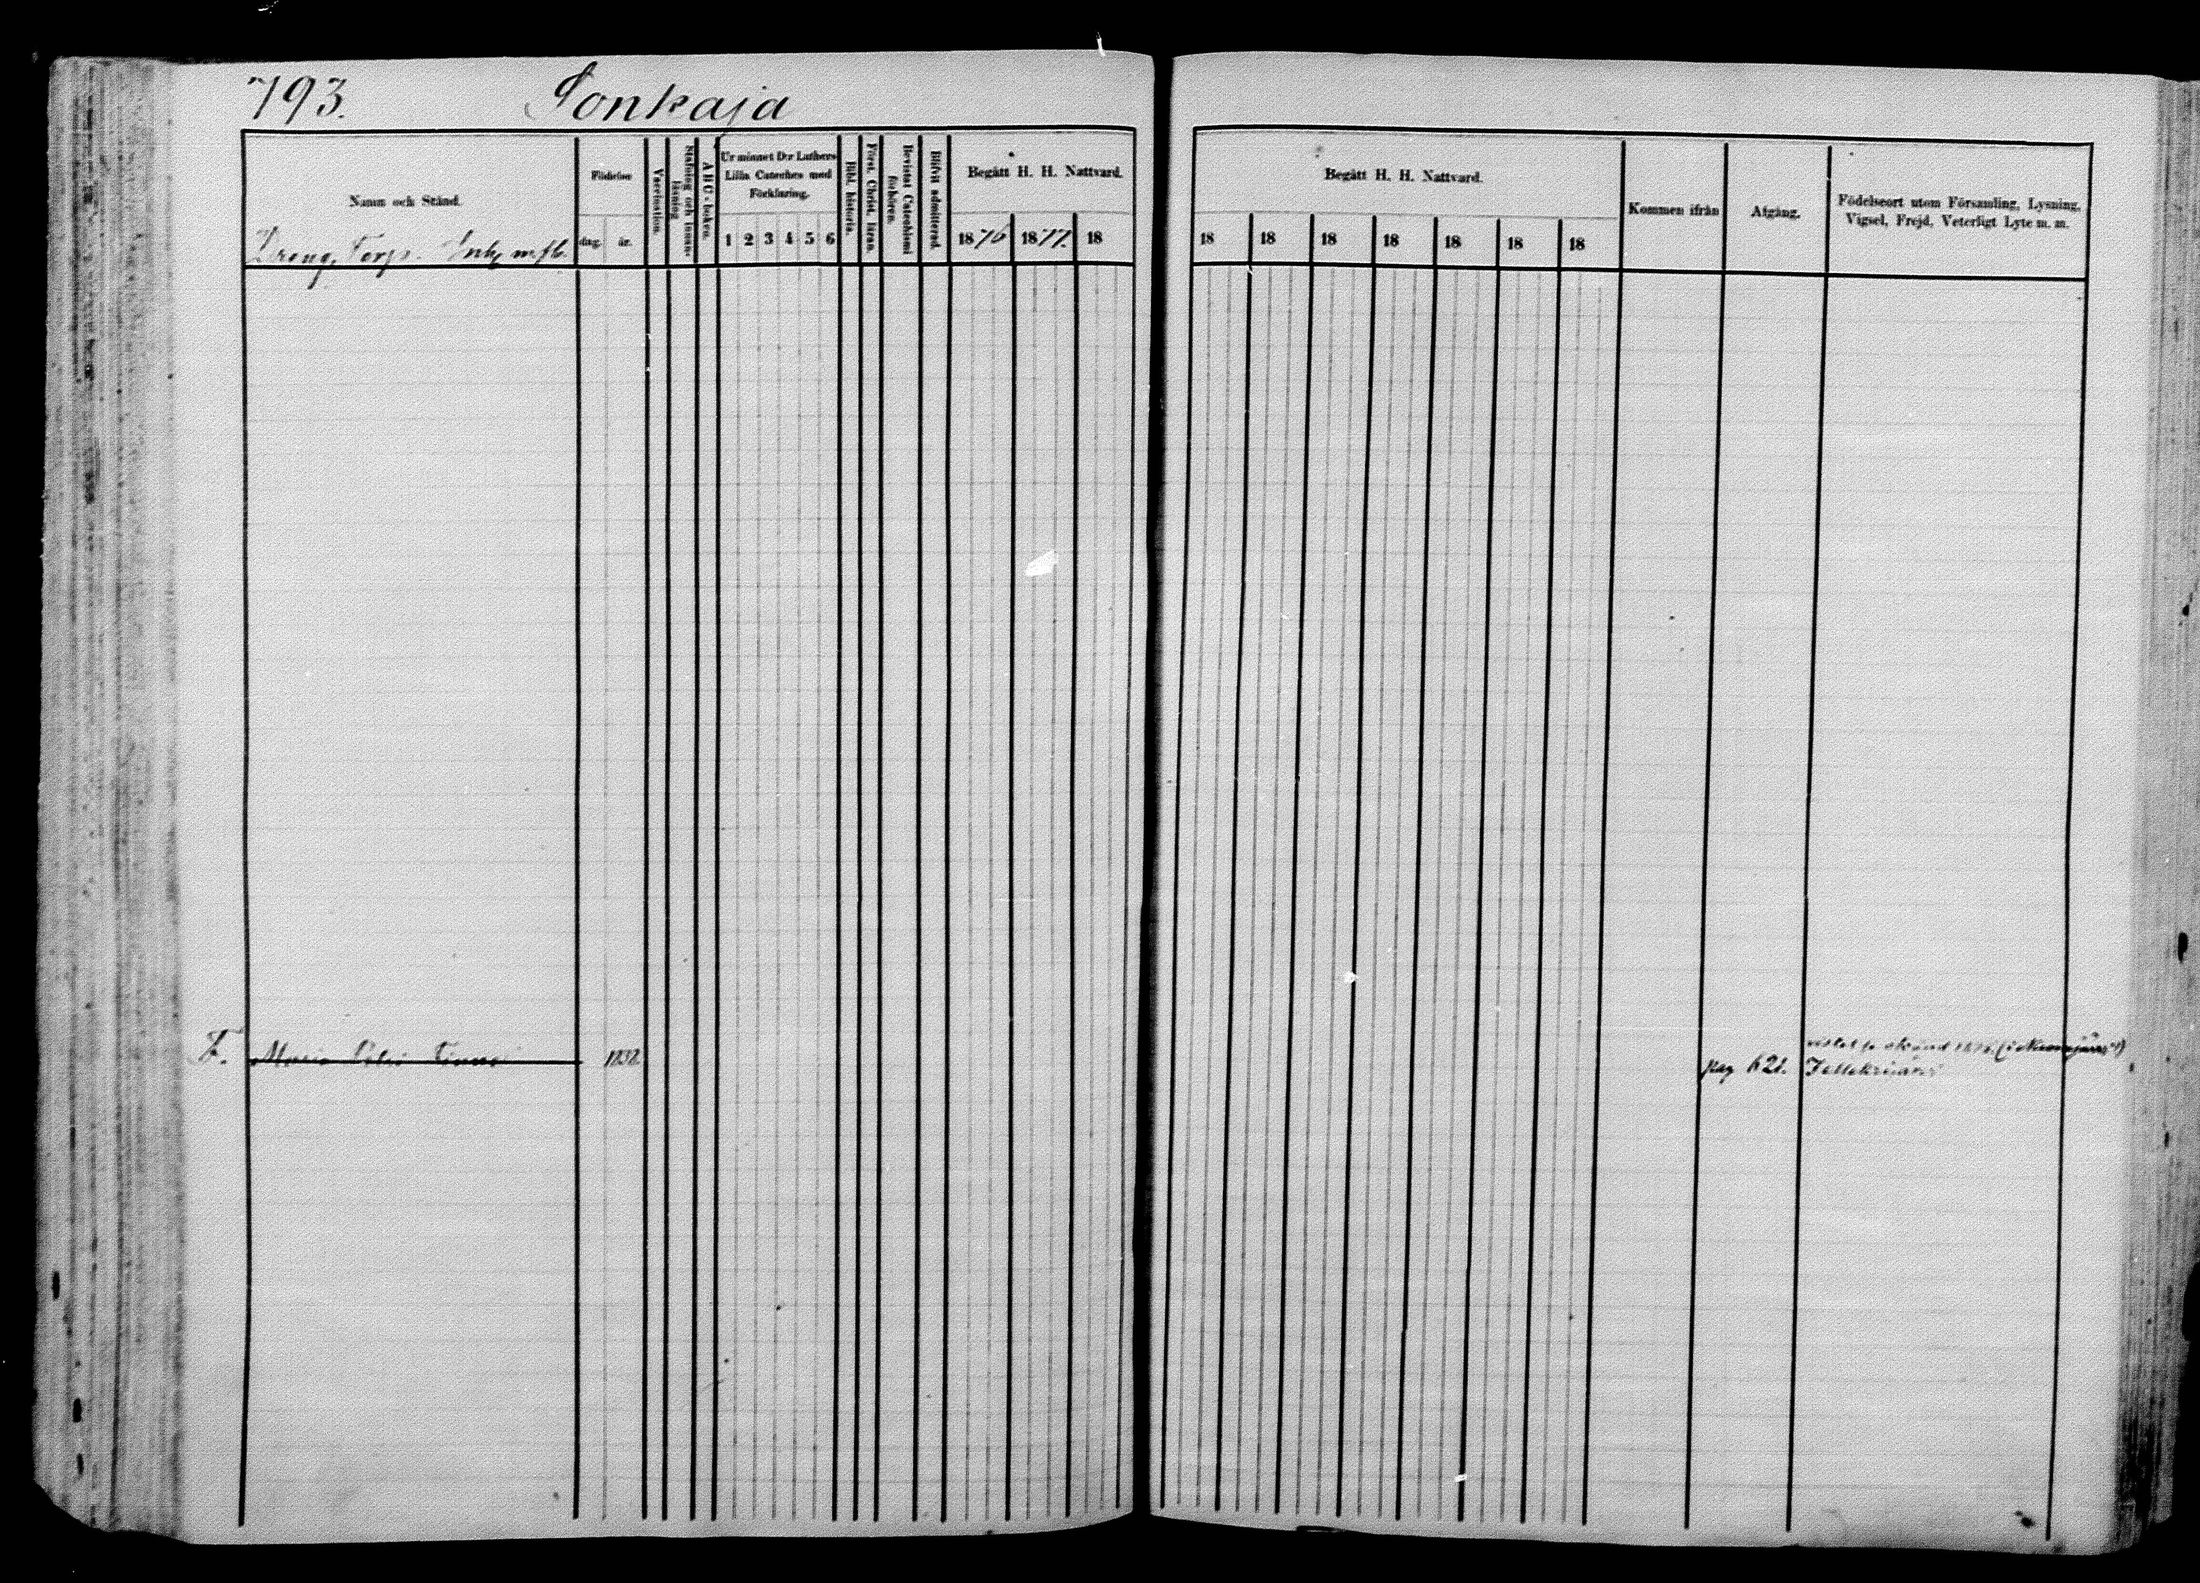 793. Sonkaja
Namn och Stånd.
Dreng, Torp. Inh. m. fl.
Födelse
dag. år.
Vaccination.
Stafning och innanläsning
A B C-boken.
Ur minnet D:r Luthers
Lilla Cateches med
Förklaring.
1 2 3 4 5 6
Bibl. historia.
Först. Christ. läran.
Bevistat Catechismi
förhören.
Blifvit admitterad.
Begått H. H. Nattvard.
1876 1877. 18
Begått H. H. Nattvard.
18 18 18 18 18 18 18
Kommen ifrån
Afgång.
Födelseort utom Församling, Lysning,
Vigsel, Frejd, Veterligt Lyte m. m.
Maria 1832
pag 621.